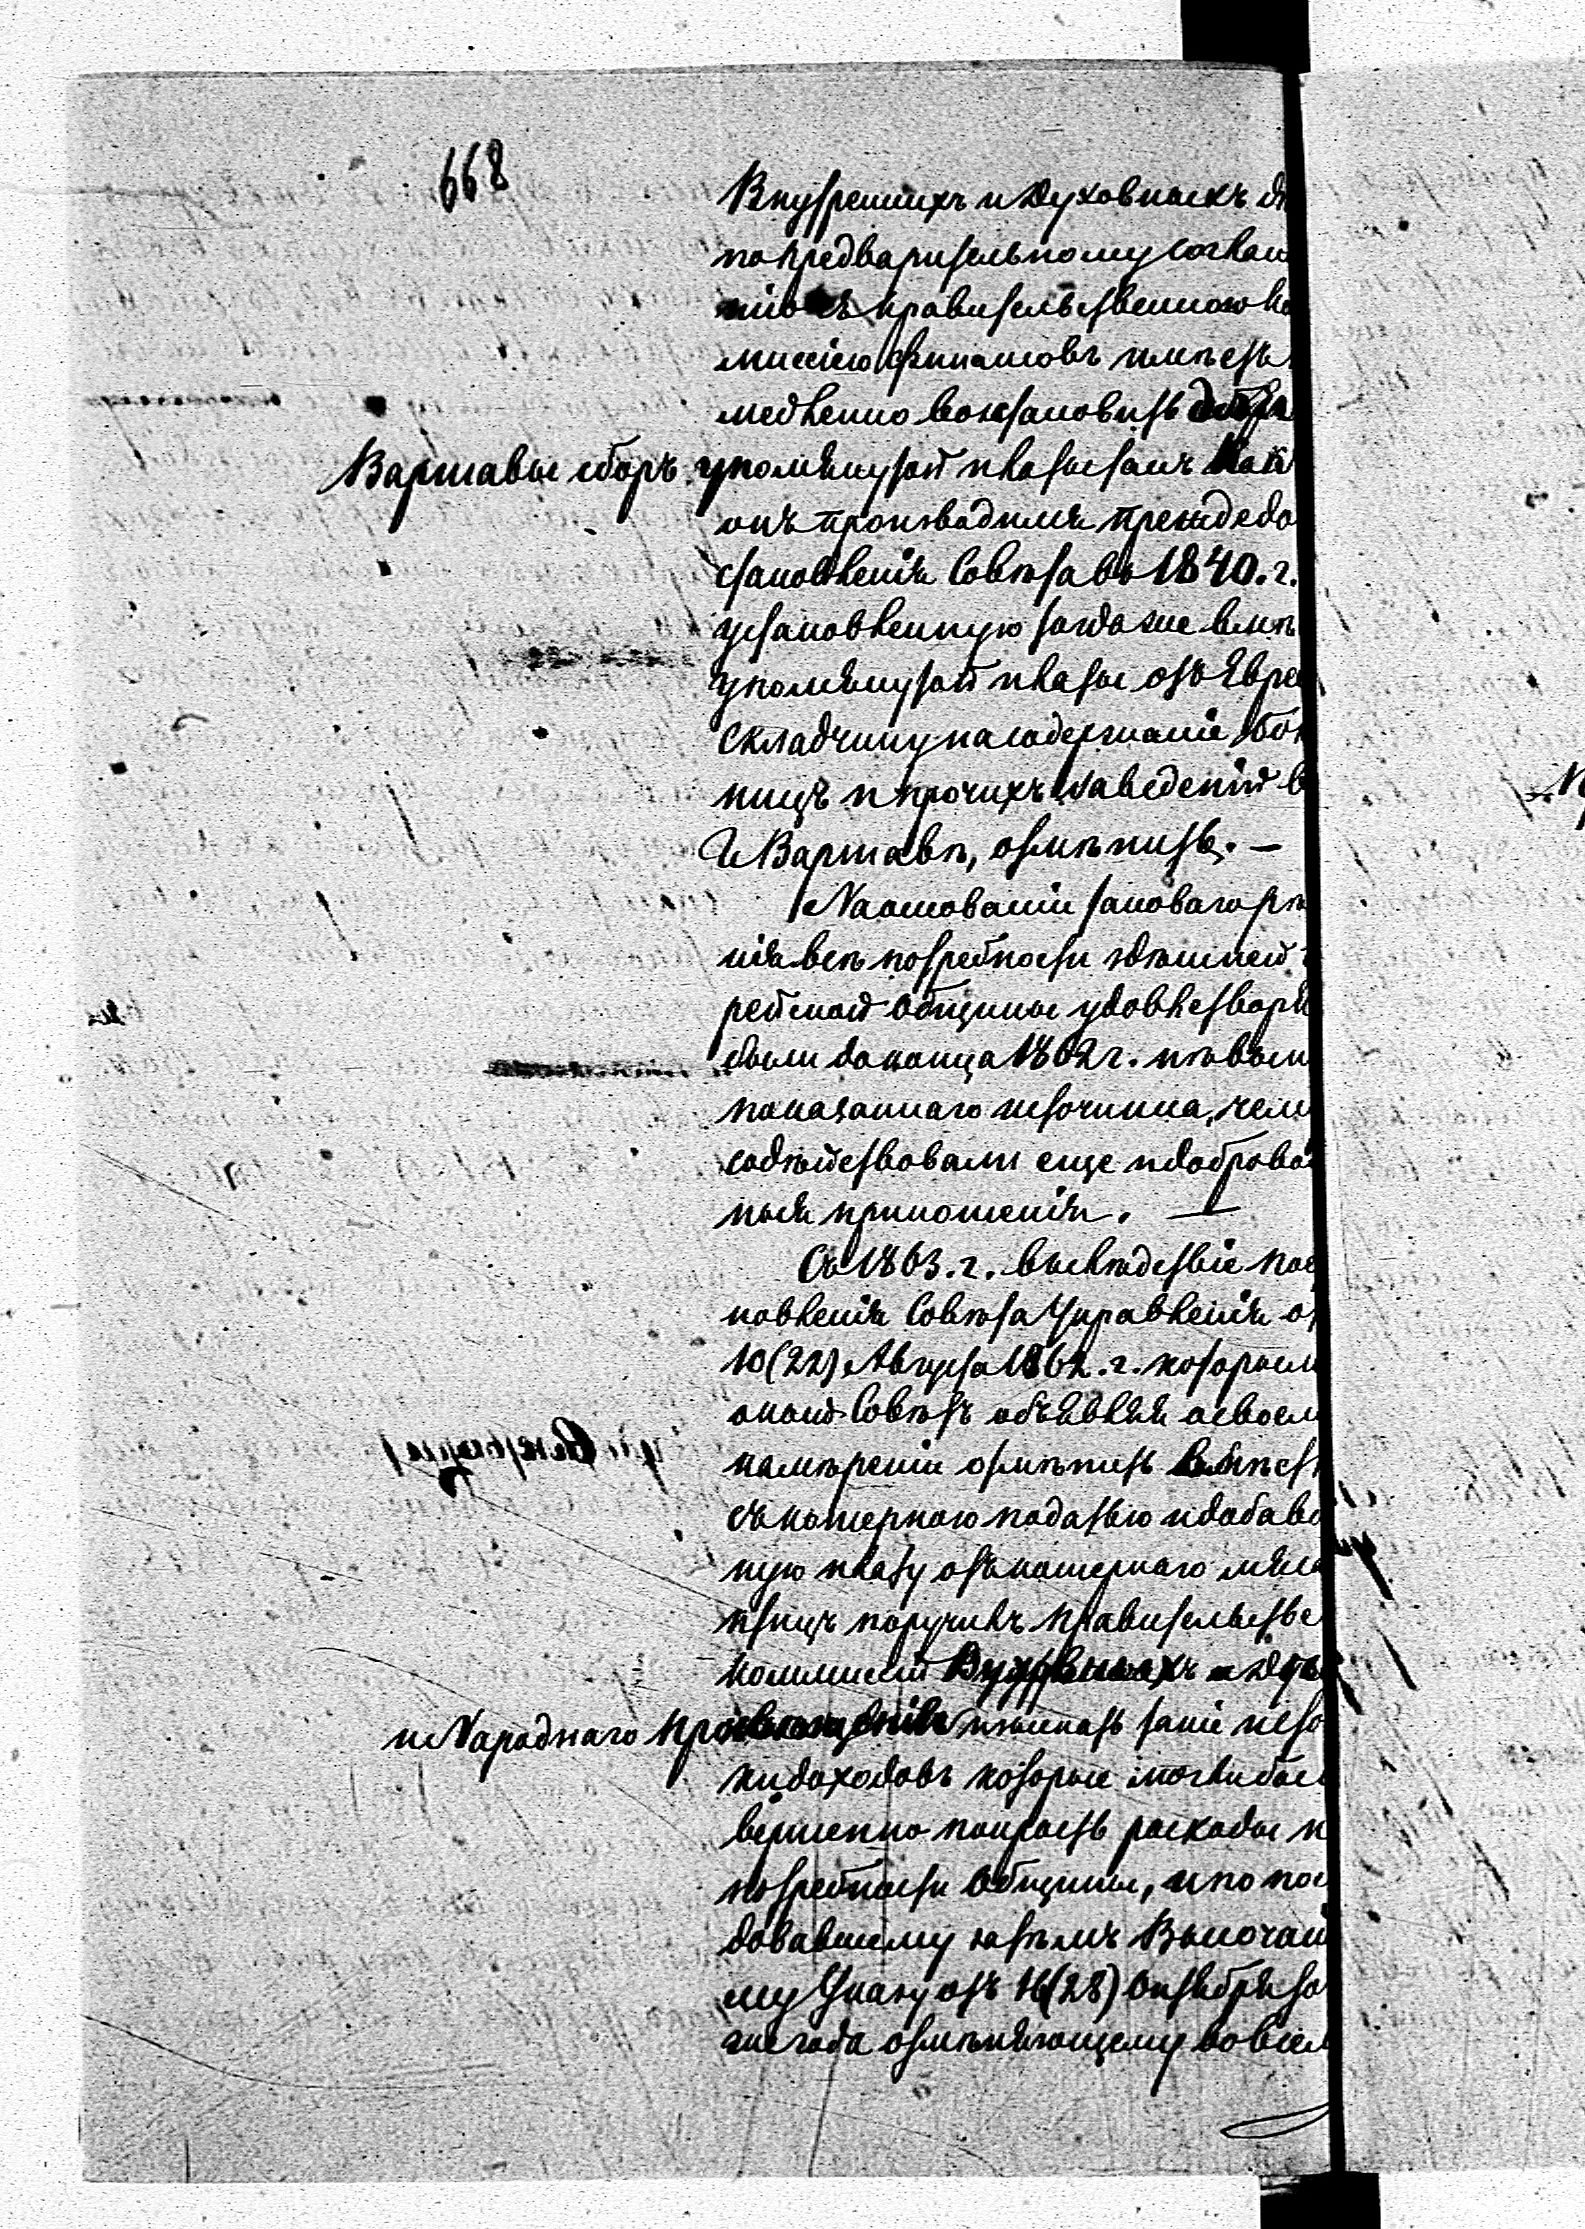 668
Внутреннихъ и Духовныхъ дѣ
по предварительному соглаш
нію съ правительственною Ко
миссіею финансовъ имѣетъ
медленно возстановить
Варшавы сборъ упомянутой платы такъ какъ
онъ производимъ прежде до
становленія Совѣта въ 1840. г.
установленную тогда же вмѣ
упомянутой платы отъ Евре
складчину на содержаніе бол
ницъ и прочихъ заведеній в
Г. Варшавѣ, отмѣнить. —
На основаніи таковаго рѣ
нія всѣ потребности здѣшней
рейской общины удовлетвори
были до конца 1862 г. изъ выш
показаннаго источника, чему
содѣйствовали еще и доброво
ныя приношенія. —
Съ 1863. г. вслѣдствіе пос
новленія Совѣта Управленія о
10 (22) Августа 1862. г. которым
оный Совѣтъ объявляя о своем
намѣреніи отмѣнить вмѣст
съ кошерною податью и добаво
ную плату отъ кошернаго мяса
птицъ поручилъ правительстве
коммиссіи Духовныхъ дѣл
и Народнаго просвѣщенія изыскать такіе исто
ки доходовъ которые могли бы
вершенно покрыть расходы н
потребности общины, и по пос
довавшему затѣмъ Высочай
му Указу отъ 16 (28) Октября то
же года отмѣняющему вовсе